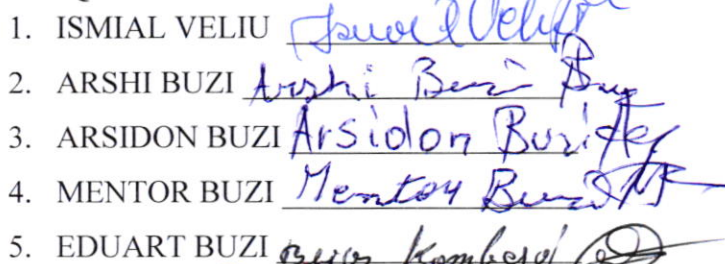 1. ISMIAL VELIU Ismail Veliu
2. ARSHI BUZI Arshi Buzi
3. ARSIDON BUZI Arsidon Buzi
4. MENTOR BUZI Mentor Buzi
5. EDUART BUZI